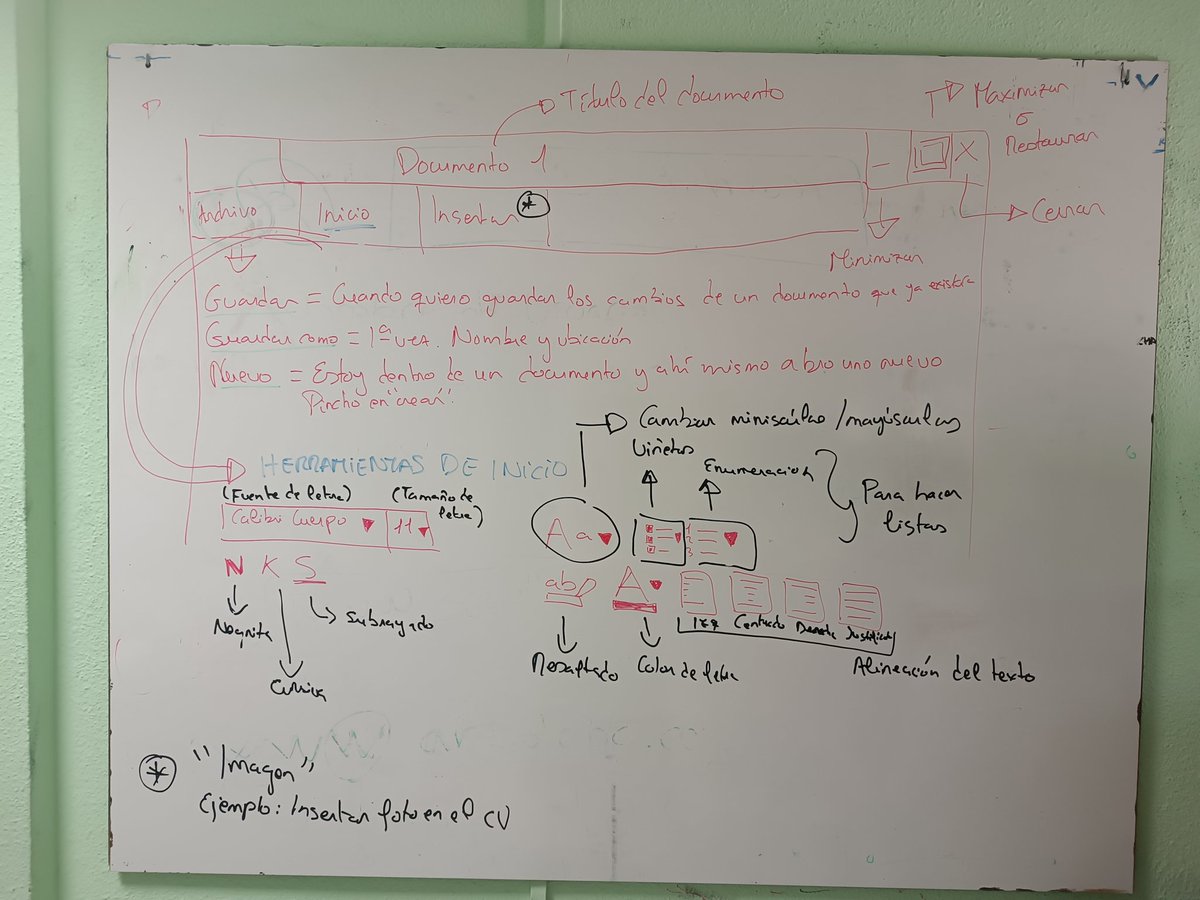 Título del documento
Maximizar
o
Restaurar
Documento 1
X
Archivo
Inicio
Insertar *
Cerrar
Minimizar
Guardar = Cuando quiero guardar los cambios de un documento que ya existira
Guardar como = 1ª vez. Nombre y ubicación
Nuevo = Estoy dentro de un documento y ahí mismo abro uno nuevo
Pincho en "crear".
Cambiar miniscúlas/mayúsculas
Viñetas
Enumeración
Para hacer
listas
HERRAMIENTAS DE INICIO
(Fuente de letra)
(Tamaño de
letra)
Calibri Cuerpo
11
Aa
1
2
3
N K S
Negrita
Subrayado
Cursiva
ab
A
Izq
Centrado
Derecha
Justificado
Resaltado
Color de letra
Alineación del texto
* "Imagen"
Ejemplo: Insertar foto en el CV